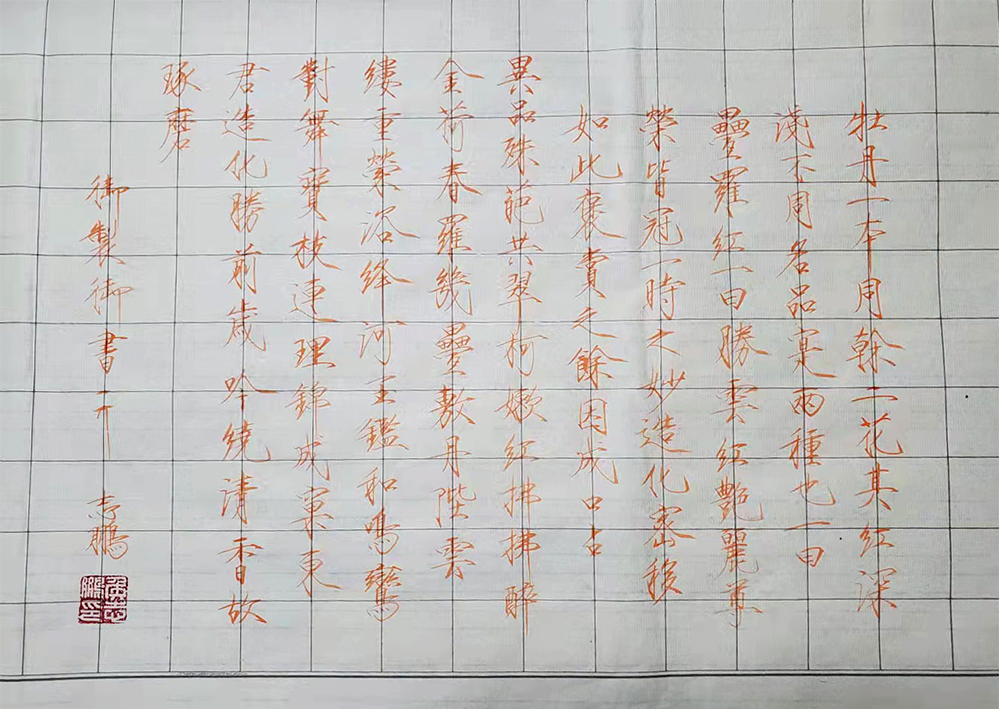 牡丹一本同幹二花其紅深
淺不同名品寔兩種也一曰
疊羅紅一曰勝雲紅艷麗尊
榮皆冠一時之妙造化密移
如此褒賞之餘因成口占
異品殊葩共翠柯嫩紅拂拂醉
金荷春羅幾疊敷丹陛雲
縷重縈浴絳河玉鑑和鳴鸞
對舞寶枝連理錦成窠東
君造化勝前歲吟繞清香故
琢磨
御製御書 志鵬